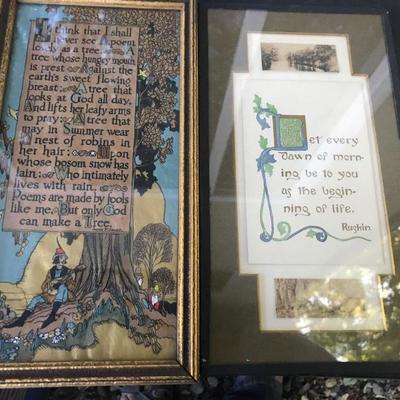 I think that I shall
never see A poem
lovely as a tree. A
tree whose hungry mouth
is prest Against the
earth's sweet flowing
breast; A tree that
looks at God all day,
And lifts her leafy arms
to pray; A tree that
may in Summer wear
A nest of robins in
her hair; Upon
whose bosom snow has
lain; Who intimately
lives with rain..
Poems are made by fools
like me, But only God
can make a Tree.
Let every
dawn of morn-
ing be to you
as the begin-
ning of life.
Ruskin